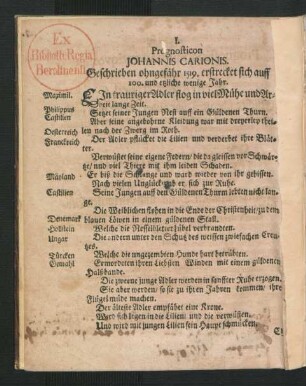 Ex
Biblioth. Regia
Berolinensi
I.
Prognosticon
JOHANNIS CARIONIS.
Geschrieben ohngefähr 199. erstrecket sich auff
100. und etzliche wenige Jahr.
Maximil. EIn trauriger Adler flog in viel Mühe und Ar-
beit lange Zeit.
Philippus Setzet seiner Jungen Nest auff ein Güldenen Thurn,
Castilien Aber seine angebohrne Kleidung war mit
Oesterreich len nach der Zwerg im Roth.
Franckreich Der Adler pflücket die Lilien und verderbet ihre Blät-
ter.
Verwüstet seine eigene Federn/ die da gleissen vor Schwär-
tze/ und viel Thiere mit ihm leiden Schaden.
Mäyland Er biß die Schlange und ward wieder von ihr gebissen.
Nach vielen Unglück gab er sich zur Ruhe.
Castilien Seine Jungen auff den Güldenen Thurn lebten nicht lan-
ge.
Die Weiblichen flohen in die Ende der Christenheit/ zu dem
Denemark blauen Löwen in einem güldenen Stall.
Holstein Welche die Nesselbletter übel verbrandten.
Ungar Die andern unter den Schutz des weissen zwiefachen Creu-
tzes.
Türcken Welche die ungezembten Hunde hart betrübten.
Gemahl Ermordeten ihren Liebsten Winden mit einem güldenen
Halsbande.
Die zweene junge Adler werden in sanffter Ruhe erzogen,
Sie aber werden/ so sie zu ihren Jahren kommen/ ihre
Flügel müde machen.
Der älteste Adler empfähet eine Krone.
Wird sich legen in die Lilien und die verwüsten.
Und wird mit jungen Lilien sein Haupt schmücken,